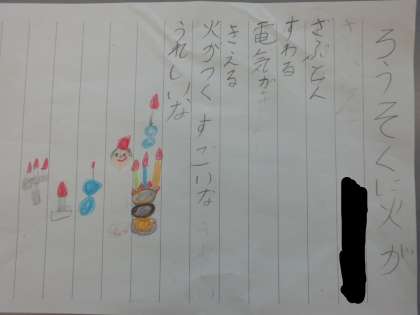 ろうそくに火が
ざぶとん
すわる
電気が
きえる
火がつくすごいな
うれしいな